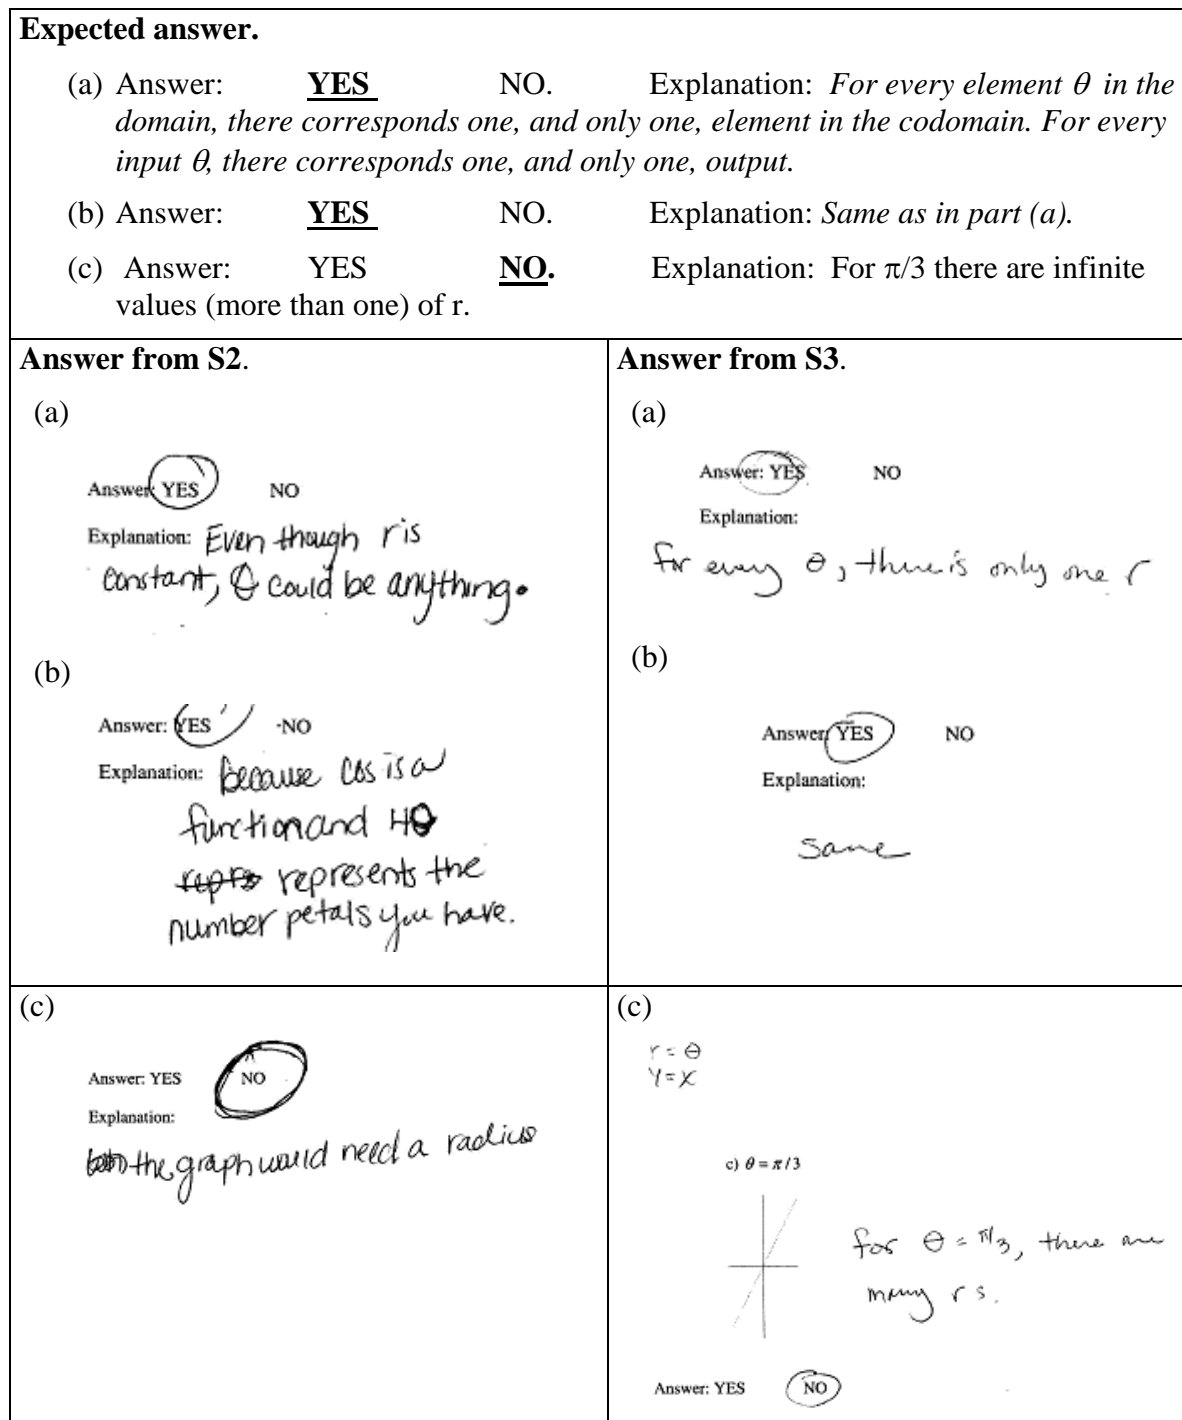 Expected answer.
(a) Answer: YES NO. Explanation: For every element θ in the
domain, there corresponds one, and only one, element in the codomain. For every
input θ, there corresponds one, and only one, output.
(b) Answer: YES NO. Explanation: Same as in part (a).
(c) Answer: YES NO. Explanation: For π/3 there are infinite
values (more than one) of r.
Answer from S2.
(a)
Answer: YES NO
Explanation: Even though r is
constant, θ could be anything.
(b)
Answer: YES NO
Explanation: because cos is a
function and 4θ
represents the
number petals you have.
Answer from S3.
(a)
Answer: YES NO
Explanation:
for every θ, there is only one r
(b)
Answer: YES NO
Explanation:
Same
(c)
Answer: YES NO
Explanation:
the graph would need a radius
(c)
r = θ
y = x
c) θ = π/3
for θ = π/3, there are
many r s.
Answer: YES NO